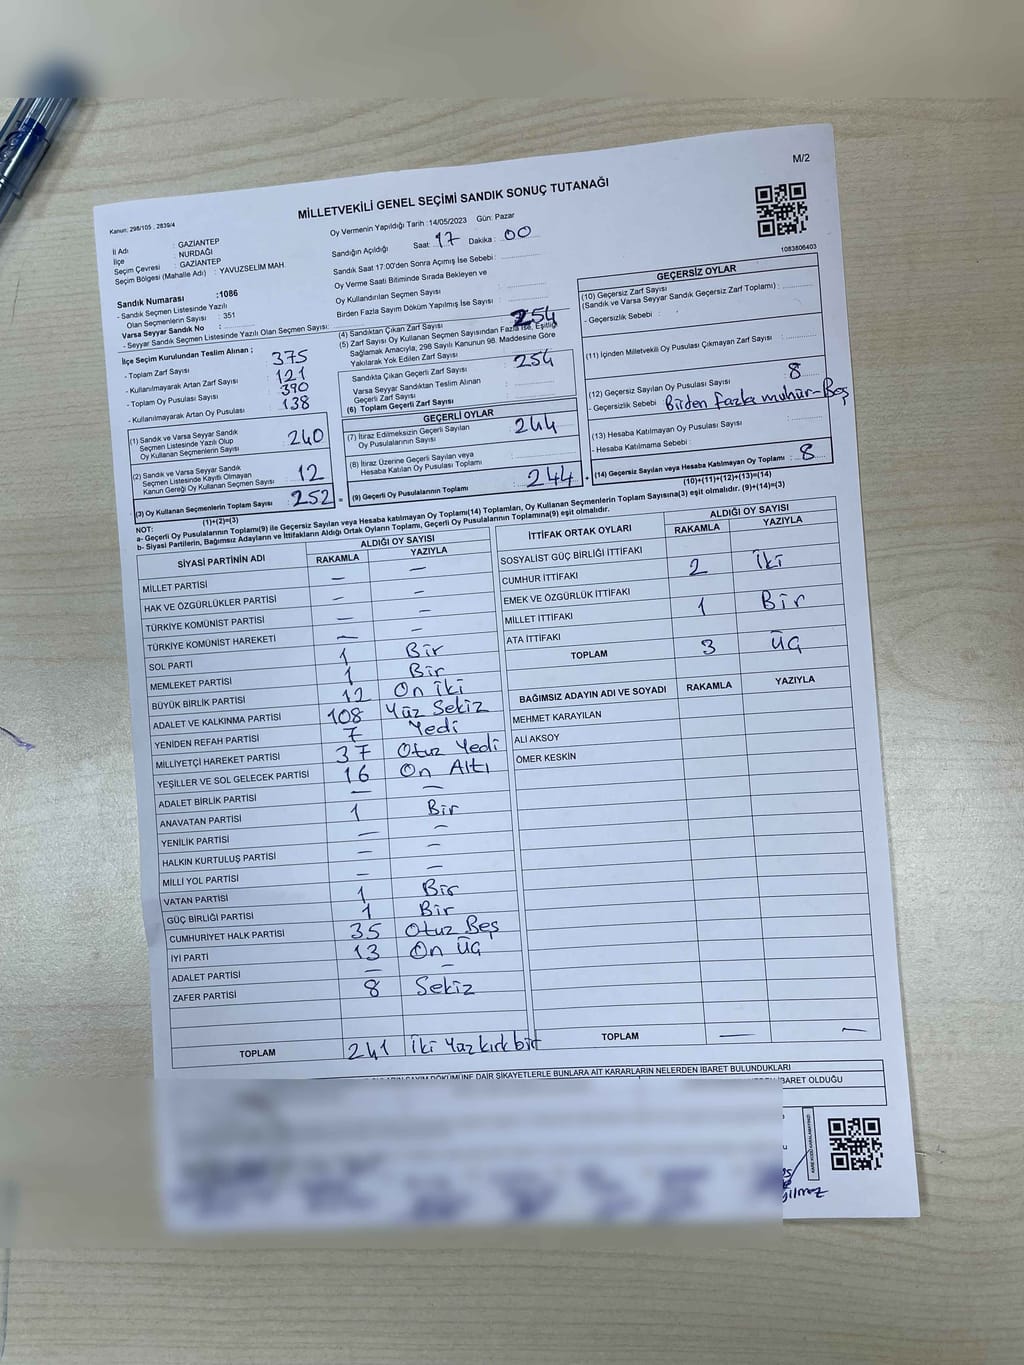 M/2
MİLLETVEKİLİ GENEL SEÇİMİ SANDIK SONUÇ TUTANAĞI
Kanun; 298/105 , 2839/4
İl Adı : GAZİANTEP
İlçe : NURDAĞI
Seçim Çevresi : GAZİANTEP
Seçim Bölgesi (Mahalle Adı) : YAVUZSELIM MAH.
Oy Vermenin Yapıldığı Tarih :14/05/2023 Gün: Pazar
Sandığın Açıldığı Saat: 17 Dakika : 00
Sandık Saat 17:00'den Sonra Açımış İse Sebebi :
Oy Verme Saati Bitiminde Sırada Bekleyen ve
Oy Kullandırılan Seçmen Sayısı
Birden Fazla Sayım Döküm Yapılmış İse Sayısı :
1083806403
Sandık Numarası :1086
- Sandık Seçmen Listesinde Yazılı
Olan Seçmenlerin Sayısı : 351
Varsa Seyyar Sandık No :
- Seyyar Sandık Seçmen Listesinde Yazılı Olan Seçmen Sayısı:
İlçe Seçim Kurulundan Teslim Alınan ;
- Toplam Zarf Sayısı : 375
- Kullanılmayarak Artan Zarf Sayısı : 121
- Toplam Oy Pusulası Sayısı : 390
- Kullanılmayarak Artan Oy Pusulası : 138
(1) Sandık ve Varsa Seyyar Sandık
Seçmen Listesinde Yazılı Olup
Oy Kullanan Seçmenlerin Sayısı : 240
(2) Sandık ve Varsa Seyyar Sandık
Seçmen Listesinde Kayıtlı Olmayan
Kanun Gereği Oy Kullanan Seçmen Sayısı : 12
(3) Oy Kullanan Seçmenlerin Toplam Sayısı : 252 =
(1)+(2)=(3)
(4) Sandıktan Çıkan Zarf Sayısı : 254
(5) Zarf Sayısı Oy Kullanan Seçmen Sayısından Fazla İse, Eşitliği
Sağlamak Amacıyla, 298 Sayılı Kanunun 98. Maddesine Göre
Yakılarak Yok Edilen Zarf Sayısı :
Sandıkta Çıkan Geçerli Zarf Sayısı : 254
Varsa Seyyar Sandıktan Teslim Alınan
Geçerli Zarf Sayısı :
(6) Toplam Geçerli Zarf Sayısı :
GEÇERLİ OYLAR
(7) İtiraz Edilmeksizin Geçerli Sayılan
Oy Pusulalarının Sayısı : 244
(8) İtiraz Üzerine Geçerli Sayılan veya
Hesaba Katılan Oy Pusulası Toplamı :
(9) Geçerli Oy Pusulalarının Toplamı : 244 +
GEÇERSİZ OYLAR
(10) Geçersiz Zarf Sayısı
(Sandık ve Varsa Seyyar Sandık Geçersiz Zarf Toplamı) :
- Geçersizlik Sebebi :
(11) İçinden Milletvekili Oy Pusulası Çıkmayan Zarf Sayısı :
(12) Geçersiz Sayılan Oy Pusulası Sayısı : 8
- Geçersizlik Sebebi : Birden fazla muhür-Beş
(13) Hesaba Katılmayan Oy Pusulası Sayısı :
- Hesaba Katılmama Sebebi :
(14) Geçersiz Sayılan veya Hesaba Katılmayan Oy Toplamı : 8
(10)+(11)+(12)+(13)=(14)
NOT:
a- Geçerli Oy Pusulalarının Toplamı(9) ile Geçersiz Sayılan veya Hesaba katılmayan Oy Toplamı(14) Toplamları, Oy Kullanan Seçmenlerin Toplam Sayısına(3) eşit olmalıdır. (9)+(14)=(3)
b- Siyasi Partilerin, Bağımsız Adayların ve İttifakların Aldığı Ortak Oyların Toplamı, Geçerli Oy Pusulalarının Toplamına(9) eşit olmalıdır.
SİYASİ PARTİNİN ADI ALDIĞI OY SAYISI
RAKAMLA YAZIYLA
MİLLET PARTİSİ — —
HAK VE ÖZGÜRLÜKLER PARTİSİ — —
TÜRKİYE KOMÜNİST PARTİSİ — —
TÜRKİYE KOMÜNİST HAREKETİ — —
SOL PARTİ 1 Bir
MEMLEKET PARTİSİ 1 Bir
BÜYÜK BİRLİK PARTİSİ 12 On iki
ADALET VE KALKINMA PARTİSİ 108 Yüz Sekiz
YENİDEN REFAH PARTİSİ 7 Yedi
MİLLİYETÇİ HAREKET PARTİSİ 37 Otuz Yedi
YEŞİLLER VE SOL GELECEK PARTİSİ 16 On Altı
ADALET BİRLİK PARTİSİ — —
ANAVATAN PARTİSİ 1 Bir
YENİLİK PARTİSİ — —
HALKIN KURTULUŞ PARTİSİ — —
MİLLİ YOL PARTİSİ — —
VATAN PARTİSİ 1 Bir
GÜÇ BİRLİĞİ PARTİSİ 1 Bir
CUMHURİYET HALK PARTİSİ 35 Otuz Beş
İYİ PARTİ 13 On Üç
ADALET PARTİSİ — —
ZAFER PARTİSİ 8 Sekiz
TOPLAM 241 İki Yüz kırk bir
İTTİFAK ORTAK OYLARI ALDIĞI OY SAYISI
RAKAMLA YAZIYLA
SOSYALİST GÜÇ BİRLİĞİ İTTİFAKI
CUMHUR İTTİFAKI 2 İki
EMEK VE ÖZGÜRLÜK İTTİFAKI
MİLLET İTTİFAKI 1 Bir
ATA İTTİFAKI
TOPLAM 3 Üç
BAĞIMSIZ ADAYIN ADI VE SOYADI RAKAMLA YAZIYLA
MEHMET KARAYILAN
ALİ AKSOY
ÖMER KESKİN
TOPLAM — —
DÖKÜMÜNE DAİR ŞİKAYETLERLE BUNLARA AİT KARARLARIN NELERDEN İBARET BULUNDUKLARI
İBARET OLDUĞU